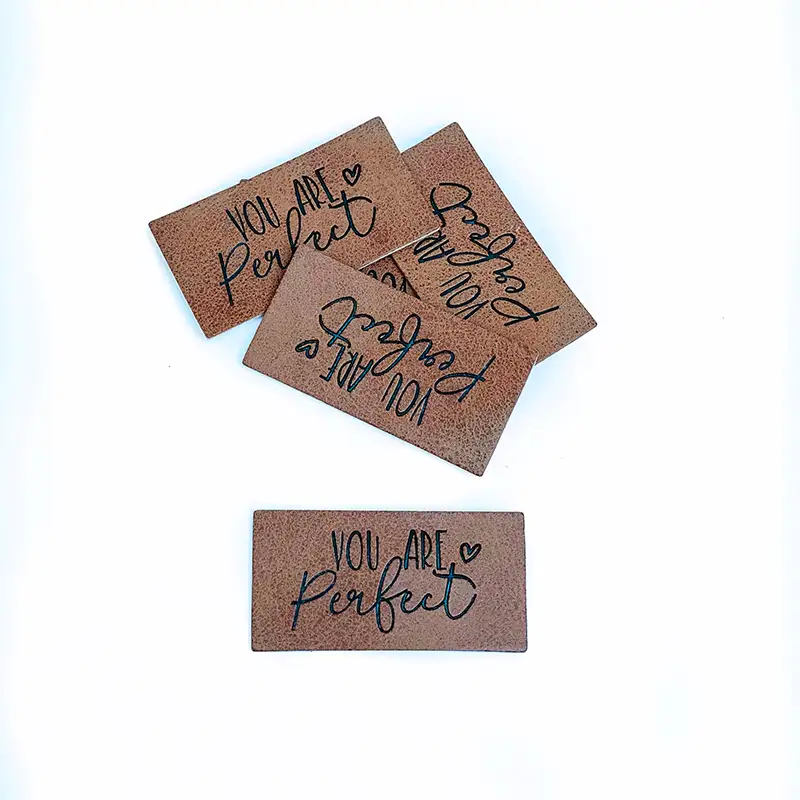 YOU ARE ♡
Perfect
YOU ARE
Perfect
YOU
YOU ARE ♡
Perfect
YOU ARE ♡
Perfect